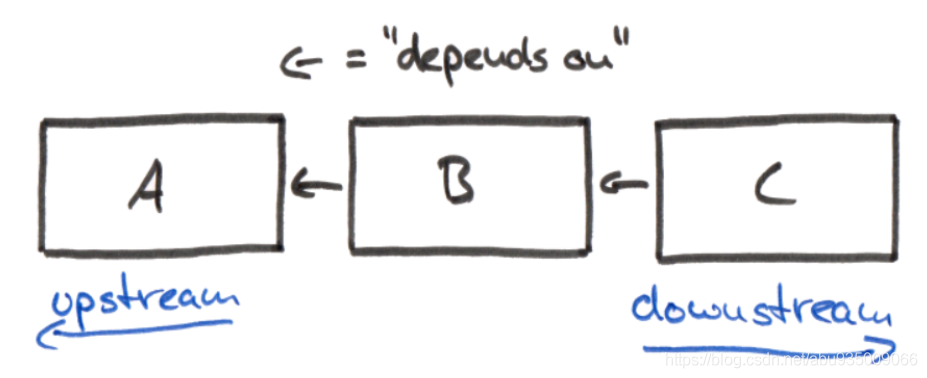 ← = "depends on"
A ← B ← C
upstream
downstream
https://blog.csdn.net/abu935009066